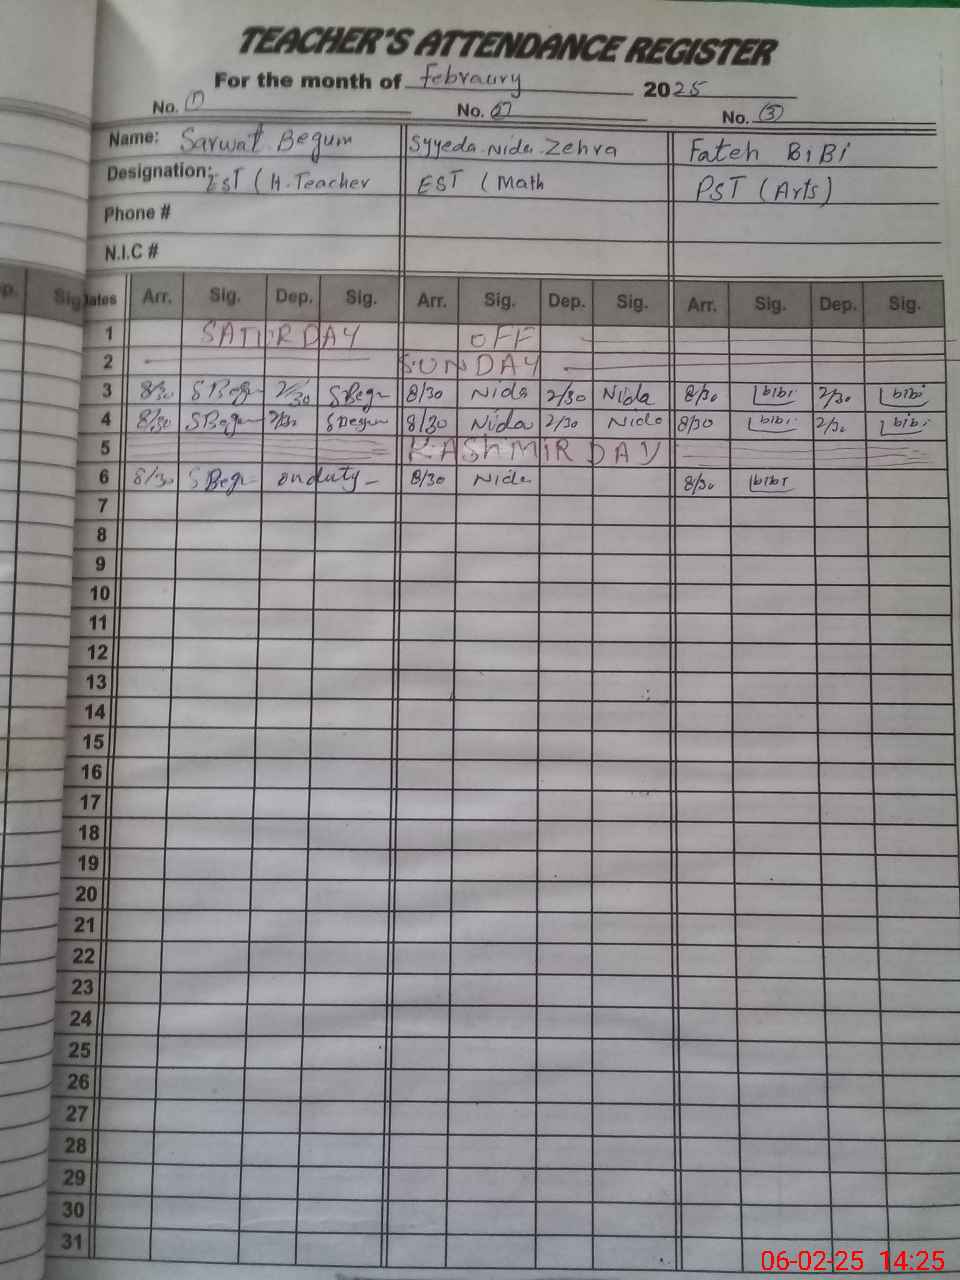 TEACHER'S ATTENDANCE REGISTER
For the month of Febraury 2025
No. 1 No. 2 No. 3
Name: Sarwat Begum Syyeda Nida Zehra Fateh BiBi
Designation: EST (H.Teacher EST (Math PST (Arts)
Phone #
N.I.C #
p. Sig
Dates Arr. Sig. Dep. Sig. Arr. Sig. Dep. Sig. Arr. Sig. Dep. Sig.
1 SATURDAY OFF
2 SUNDAY
3 8/30 SBegum 2/30 SBegum 8/30 Nida 2/30 Nida 8/30 bibi 2/30 bibi
4 8/30 SBegum 2/30 SBegum 8/30 Nida 2/30 Nida 8/30 bibi 2/30 bibi
5 KASHMIR DAY
6 8/30 SBegum onduty - 8/30 Nida 8/30 bibi
7
8
9
10
11
12
13
14
15
16
17
18
19
20
21
22
23
24
25
26
27
28
29
30
31
06-02-25 14:25